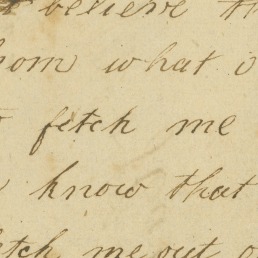 believe th
hom what i
fetch me
know that
etch me out o